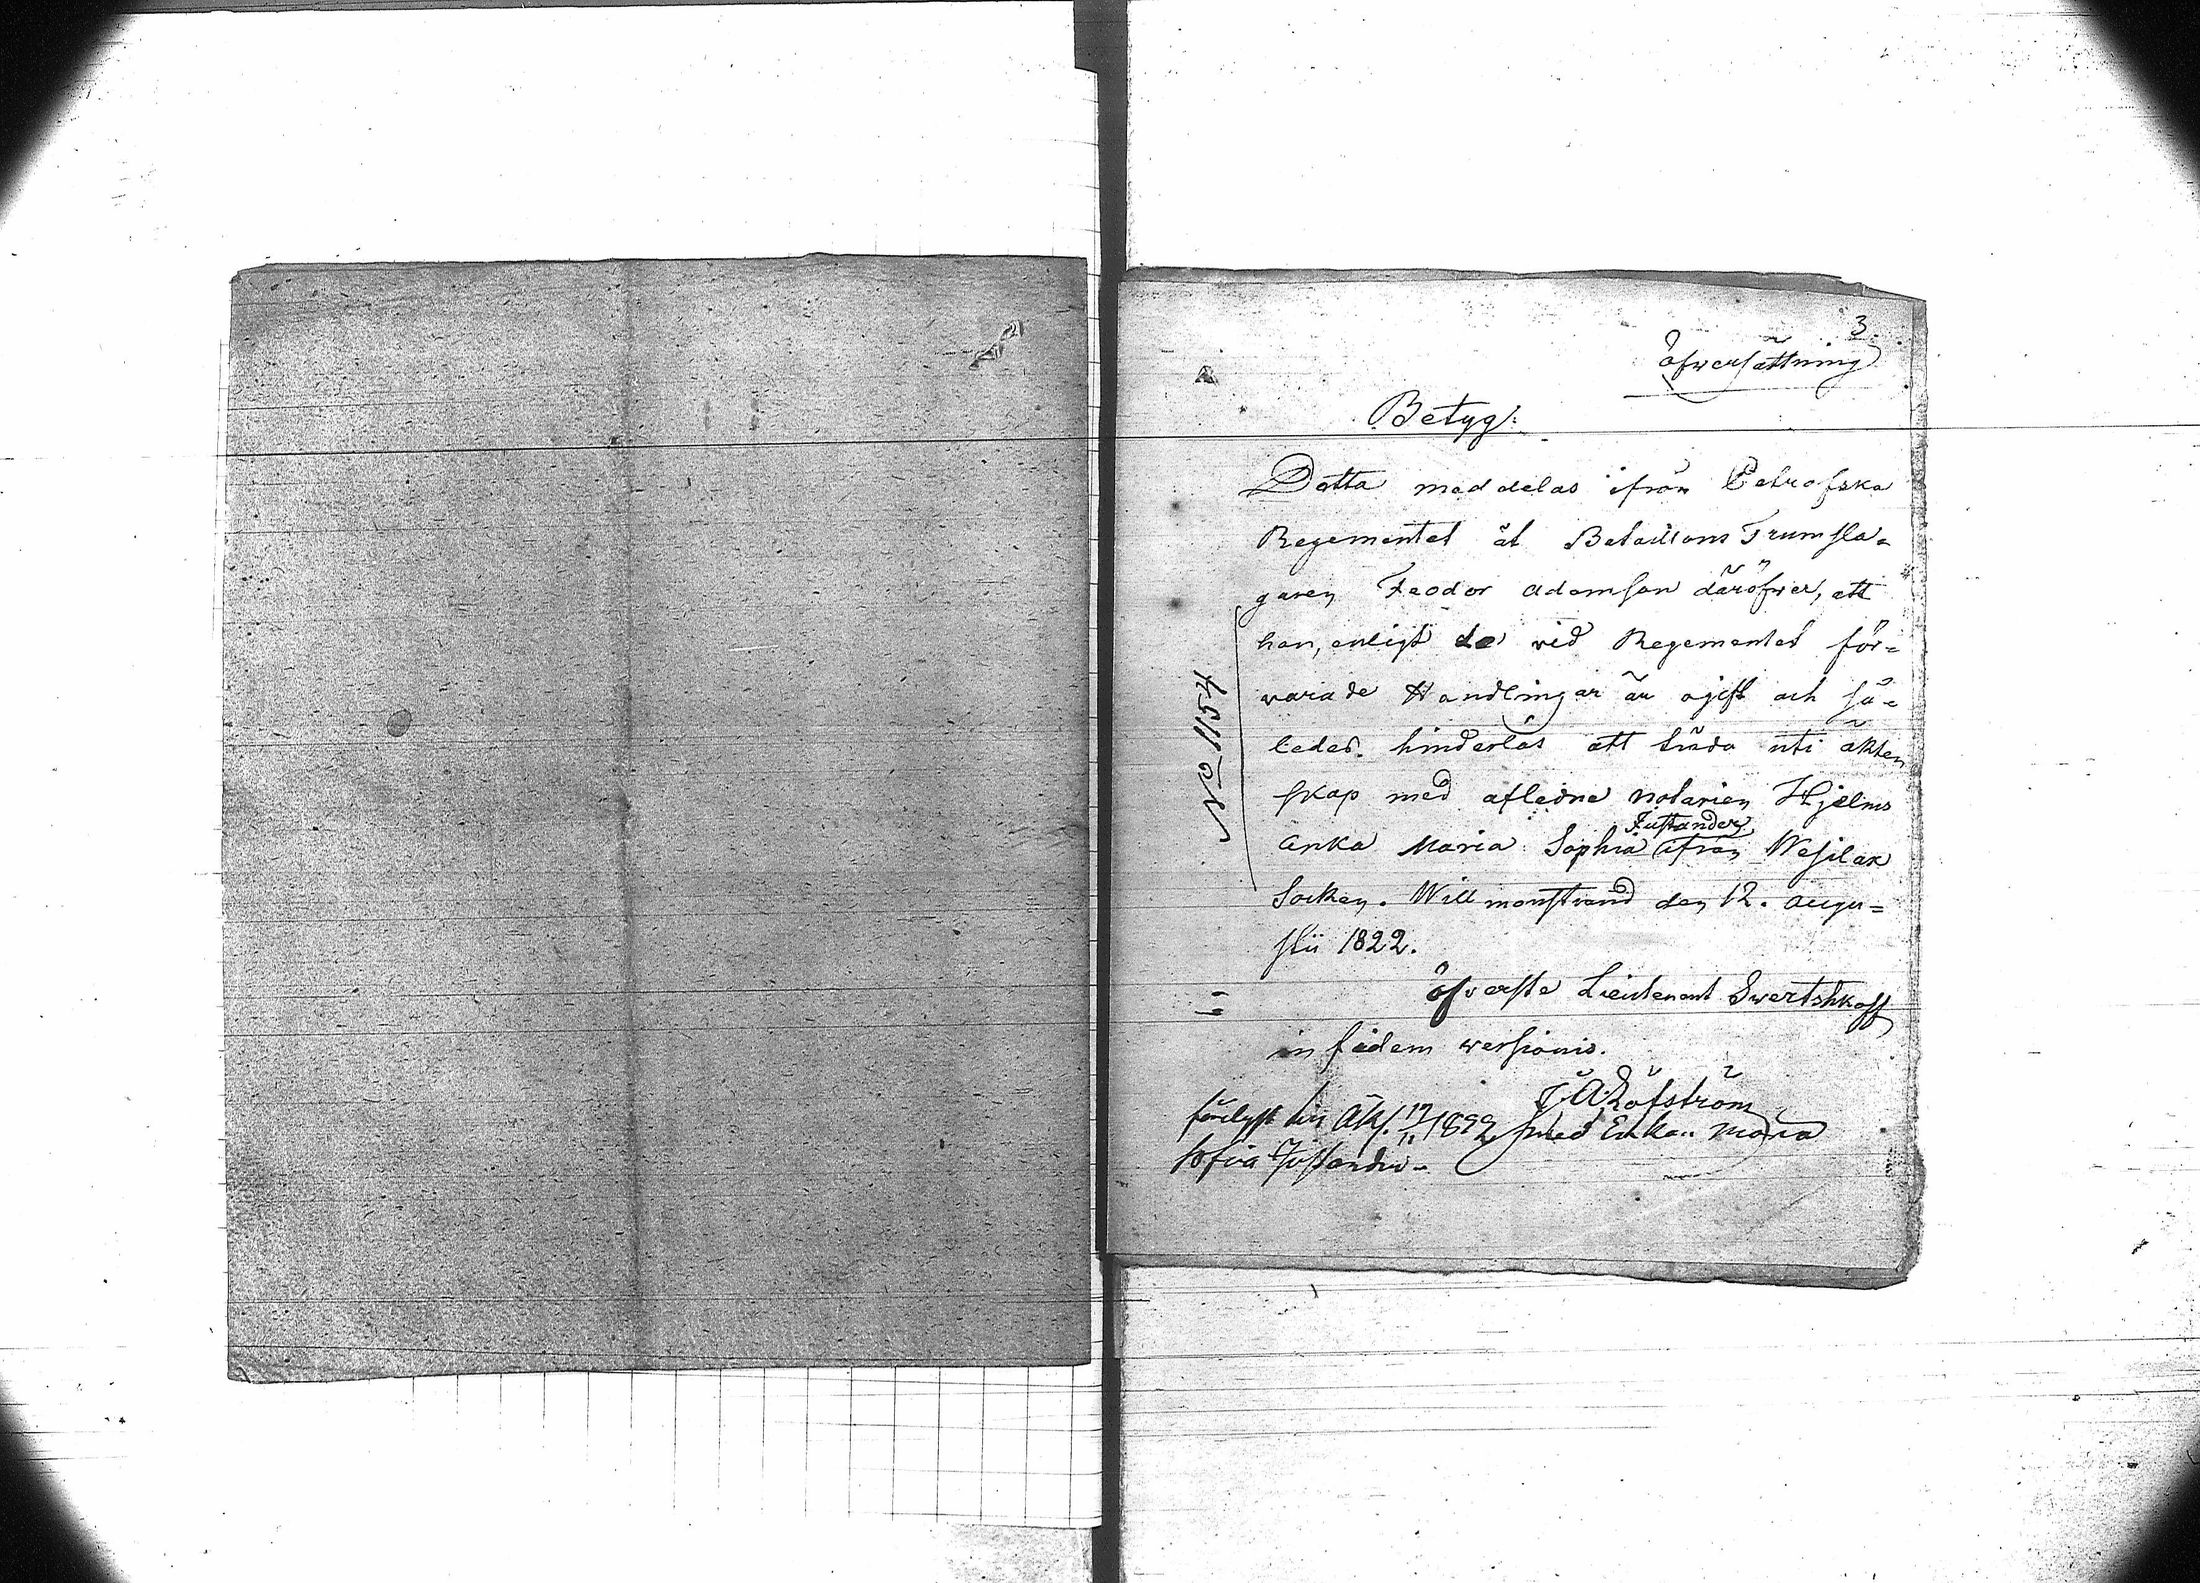 3.
öfwersättning
Betyg:
Detta meddelas ifrån Petrofska
Regementet åt Bataillons Trumsla=
garen Feodor Adamson däröfwer, att
han, enligt de wid Regementet för=
warade Handlingar är ogift och så=
ledes hinderlös att träda uti äkten
skap med aflidne Notarien Hjelms
Enka Maria Sophia Justander ifrån Wesilax
Socken. Willmanstrand den 12. Augu=
stii 1822.
Öfverste Lieutenant Swertshkoff
in fidem wersionis.
J A Löfström
No 1154
förelyst till Äkt. 1822 med Enkan Maria
Sofia Justander